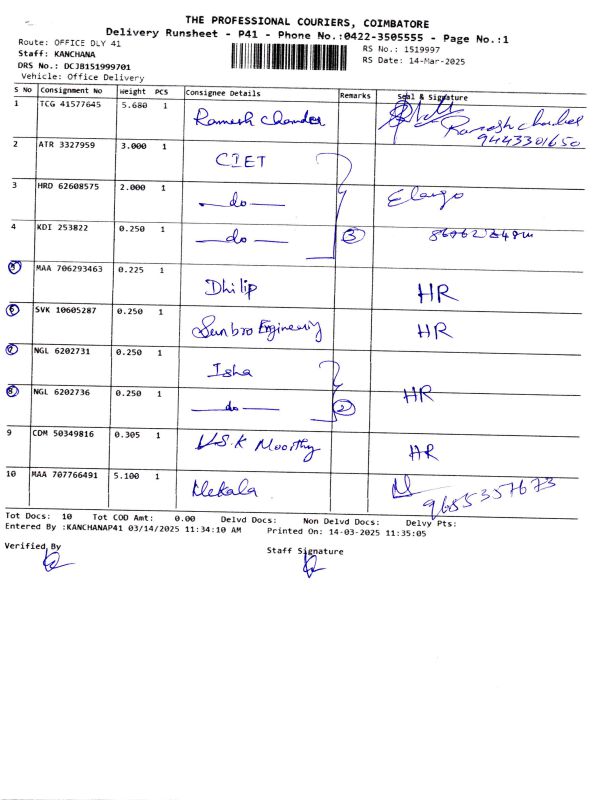 THE PROFESSIONAL COURIERS, COIMBATORE
Delivery Runsheet - P41 - Phone No.:0422-3505555 - Page No.:1
Route: OFFICE DLY 41
Staff: KANCHANA
DRS No.: DCJB151999701
Vehicle: Office Delivery
RS No.: 1519997
RS Date: 14-Mar-2025
S No Consignment No Weight PCS Consignee Details Remarks Seal & Signature
1 TCG 41577645 5.680 1 Ramesh Chander Ramesh chander
9443301650
2 ATR 3327959 3.000 1 CIET
3 HRD 62608575 2.000 1 —do— Elango
4 KDI 253822 0.250 1 —do— 3
5 MAA 706293463 0.225 1 Dhilip HR
6 SVK 10605287 0.250 1 Sunbro Engineering HR
7 NGL 6202731 0.250 1 Isha
8 NGL 6202736 0.250 1 —do— 2 HR
9 CDM 50349816 0.305 1 V.S.K Moorthy HR
10 MAA 707766491 5.100 1 Mekala 9655357673
Tot Docs: 10 Tot COD Amt: 0.00 Delvd Docs: Non Delvd Docs: Delvy Pts:
Entered By :KANCHANAP41 03/14/2025 11:34:10 AM Printed On: 14-03-2025 11:35:05
Verified By
Staff Signature